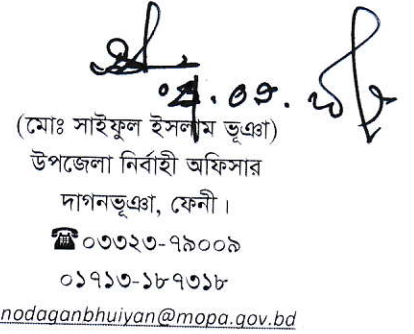 (মোঃ সাইফুল ইসলাম ভূঞা)
উপজেলা নির্বাহী অফিসার
দাগনভূঞা, ফেনী।
☎০৩৩২৩-৭৯০০৯
০১৭১৩-১৮৭৩১৮
nodaganbhuiyan@mopa.gov.bd